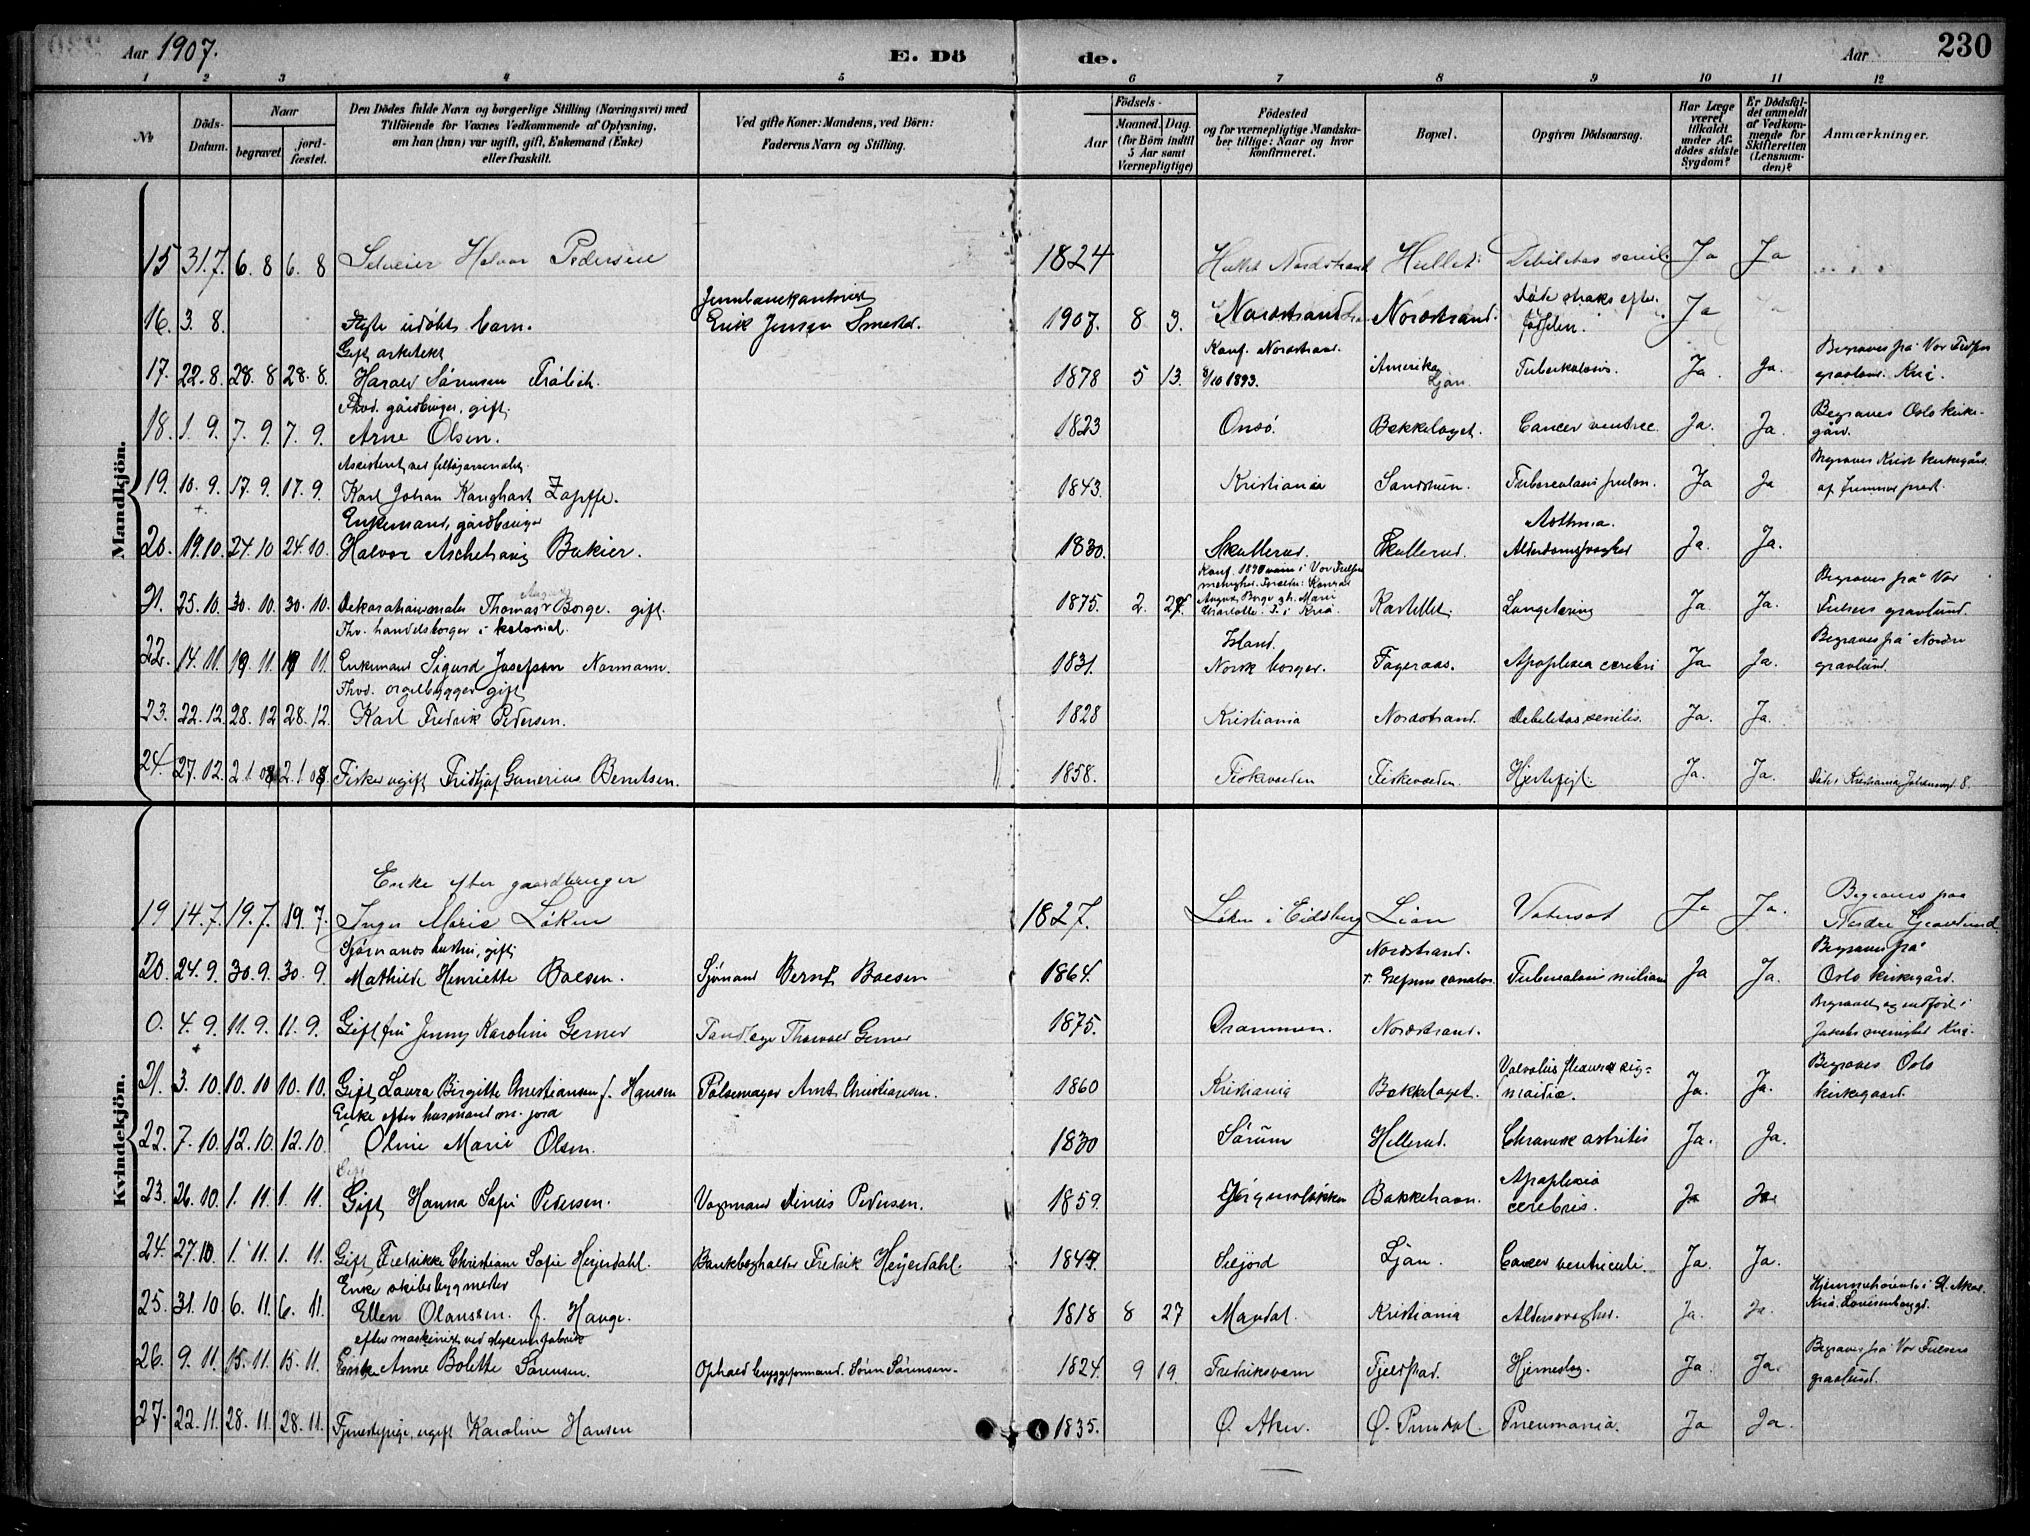 Aar 1907.
E. Döde.
Aar
230
1 2 3 4 5 6 7 8 9 10 11 12
No
Döds-Datum.
Naar
begravet
jord-fæstet.
Den Dödes fulde Navn og borgerlige Stilling (Næringsvei) med
Tilföiende for Voxnes Vedkommende af Oplysning,
om han (hun) var ugift, gift, Enkemand (Enke)
eller fraskilt.
Ved gifte Koner: Mandens, ved Börn:
Faderens Navn og Stilling.
Födsels-
Aar
Maaned. Dag.
(for Börn indtil
5 Aar samt
Værnepligtige)
Födested
og for værnepligtige Mandska-
ber tillige: Naar og hvor
konfirmeret.
Bopæl.
Opgiven Dödsaarsag.
Har Læge
været
tilkaldt
under Af-
dödes sidste
Sygdom?
Er Dödsfal-
det anmeldt
af Vedkom-
mende for
Skifteretten
(Lensman-
den)?
Anmærkninger.
Mandkjön.
15 31.7. 6. 8 6. 8 Selveier Halvor Pedersen 1824 Hullet Nordstrand Hullet. Debilitas senil. Ja Ja
Jernbanekontorist
16. 3. 8. barn. Erik Jensen 1907. 8 3. Nordstrand Nordstrand. Døde straks efter fødselen. Ja
Gift arkitekt Konf. Nordstrand Begraves fra Vor Frelsers
17. 22. 8. 28. 8 28. 8. Harald Sørensen Frølich. 1878 5 13. 8/10 1893. Amerika Ljan. Tuberkulosis. Ja. Ja. gravlund. Kria.
Fhvd. gårdbruger, gift.
18. 1. 9. 7. 9. 7. 9. Arne Olsen. 1823 Onsö. Bækkelaget. Cancer ventric. Ja. Ja. Begraves Oslo kirke-
gård.
Assistent ved
19. 10. 9. 17. 9. 17. 9. Karl Johan Zapffe. 1843. Kristiania Sandstuen. Tuberculosis pulm. Ja Ja Begraves Krist kirkegård
af prest.
Enkemand, gårdbruger Asthma.
20. 19.10. 24.10 24.10. Halvor Aschehoug Bakier. 1830. Skullerud. Skullerud. Alderdomssvaghed Ja. Ja.
August
21. 25.10. 30.10. 30.10. Dekorationsmaler Thomas Borge. gift. 1875. 2. 27. Konf. 1890 i Vor Frelsers
menighed. Forældre: Konrad
August Borge og Marie
Charlotte f. i Kria. Kastellet. Ja. Ja. Begraves fra Vor
Frelsers gravlund.
Fhv. handelsborger i kolonial. Island.
22. 14. 11. 19 11. 19 11. Enkemand Sigurd Josefsen Normann. 1831. Norsk borger. Fageraas. Apoplexia cerebri Ja Ja. Begraves fra Nordre
gravlund.
Fhvd. orgelbygger gift
23. 22. 12. 28. 12 28. 12. Karl Fredrik Pedersen. 1828 Kristiania Nordstrand. Debilitas senilis. Ja. Ja.
24. 27. 12. 2.1 08 2.1 08. Fisker ugift Fridtjof Gunerius Berntsen. 1858. Fiskevolden Fiskevolden. Hjertefejl. Ja. Ja. Døde i Kristiania 8.
Kvindekjön.
Enke efter gaardbruger
19 14.7. 19.7. 19. 7. Inger Marie Løken 1827. Løken i Eidsberg Lian Vatersot Ja Ja. Begraves paa
Nordre Gravlund
Sjømands hustru, gift. Nordstrand. Begraves fra
20. 24. 9. 30. 9. 30. 9 Mathilde Henriette Boesen. Sjømand Bernt Boesen 1864. Grefsens sanator. Tuberculosis miliaris Ja Ja. Oslo kirkegård.
0. 4. 9. 11. 9 11. 9 Gift frü Jenny Karoline Gerner Tandlæge Thorvald Gerner 1875. Drammen. Nordstrand. Begravet og indført i
Jakobs menighed Kria.
21. 3. 10. 10. 10 10. 10. Gift Laura Birgitte Christiansen f. Hansen Pølsemager Arnt Christiansen. 1860 Kristiania Bækkelaget. Ja. Ja. Begraves Oslo
kirkegaard.
Enke efter husmand m. jord
22. 7. 10. 12. 10. 12.10. Oline Marie Olsen. 1830 Sørüm Hellerud. Chronisk artritis Ja. Ja.
23. 26. 10. 1. 11. 1. 11. Gift Hanna Sofie Pedersen. Vognmand Pedersen. 1859. Bækkehavn. Apoplexia
cerebris. Ja Ja
24. 27.10 1. 11. 1. 11. Gift Fredrikke Christiane Sofie Heyerdahl. Bankbogholder Fredrik Heyerdahl. 1847. Seljord Ljan. Cancer ventriculi. Ja. Ja.
Enke skibsbygmester
25. 31. 10. 6. 11. 6. 11. Ellen Olaussen. f. Hauge. 1818 8 27 Mandal. Kristiania Aldersvaghed. Ja. Ja. Hjemmehørende i St. Aker
Kria.
efter maskinist ved
26. 9. 11. 15. 11. 15. 11. Enke Anne Bolette Sørensen. Ophald byggeformand Sören Sørensen. 1824. 9 19. Fredriksværn Fjeldstad. Hjerneslag Ja. Ja. Begraves fra Vor Frelsers
gravlund.
27. 22. 11. 28. 11. 28. 11. Tjenestepige, ugift Karoline Hansen 1835. Ø. Aker. Ø. Prindal. Pneumonia. Ja Ja.